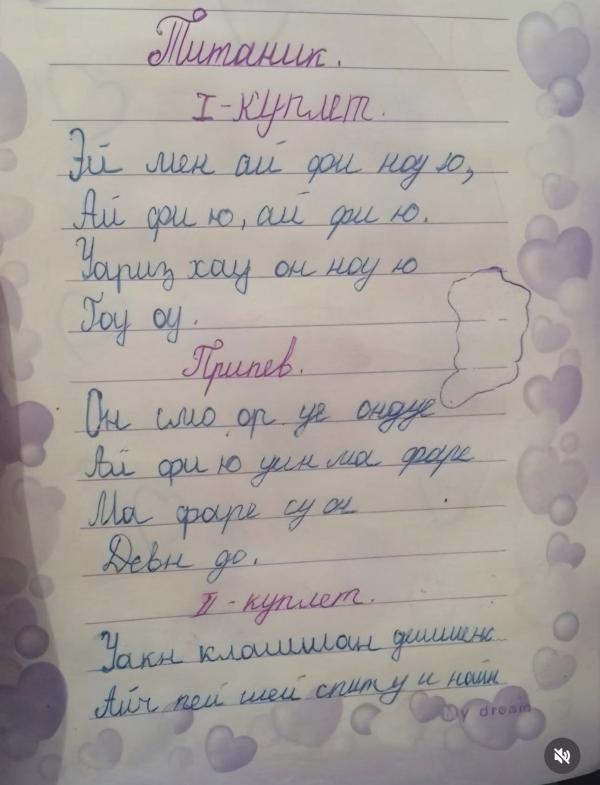 Титаник.
I-куплет.
Эй мен ай фи ноу ю,
Ай фи ю, ай фи ю.
Уариз хау он ноу ю
Гоу оу.
Припев.
Он смо ор уе ондуе
Ай фи ю уин ма фаре
Ма фаре су он
Девн до.
II-куплет.
Уакн клашшан дишшенс
Айч пей шей спиту и найн
My dream